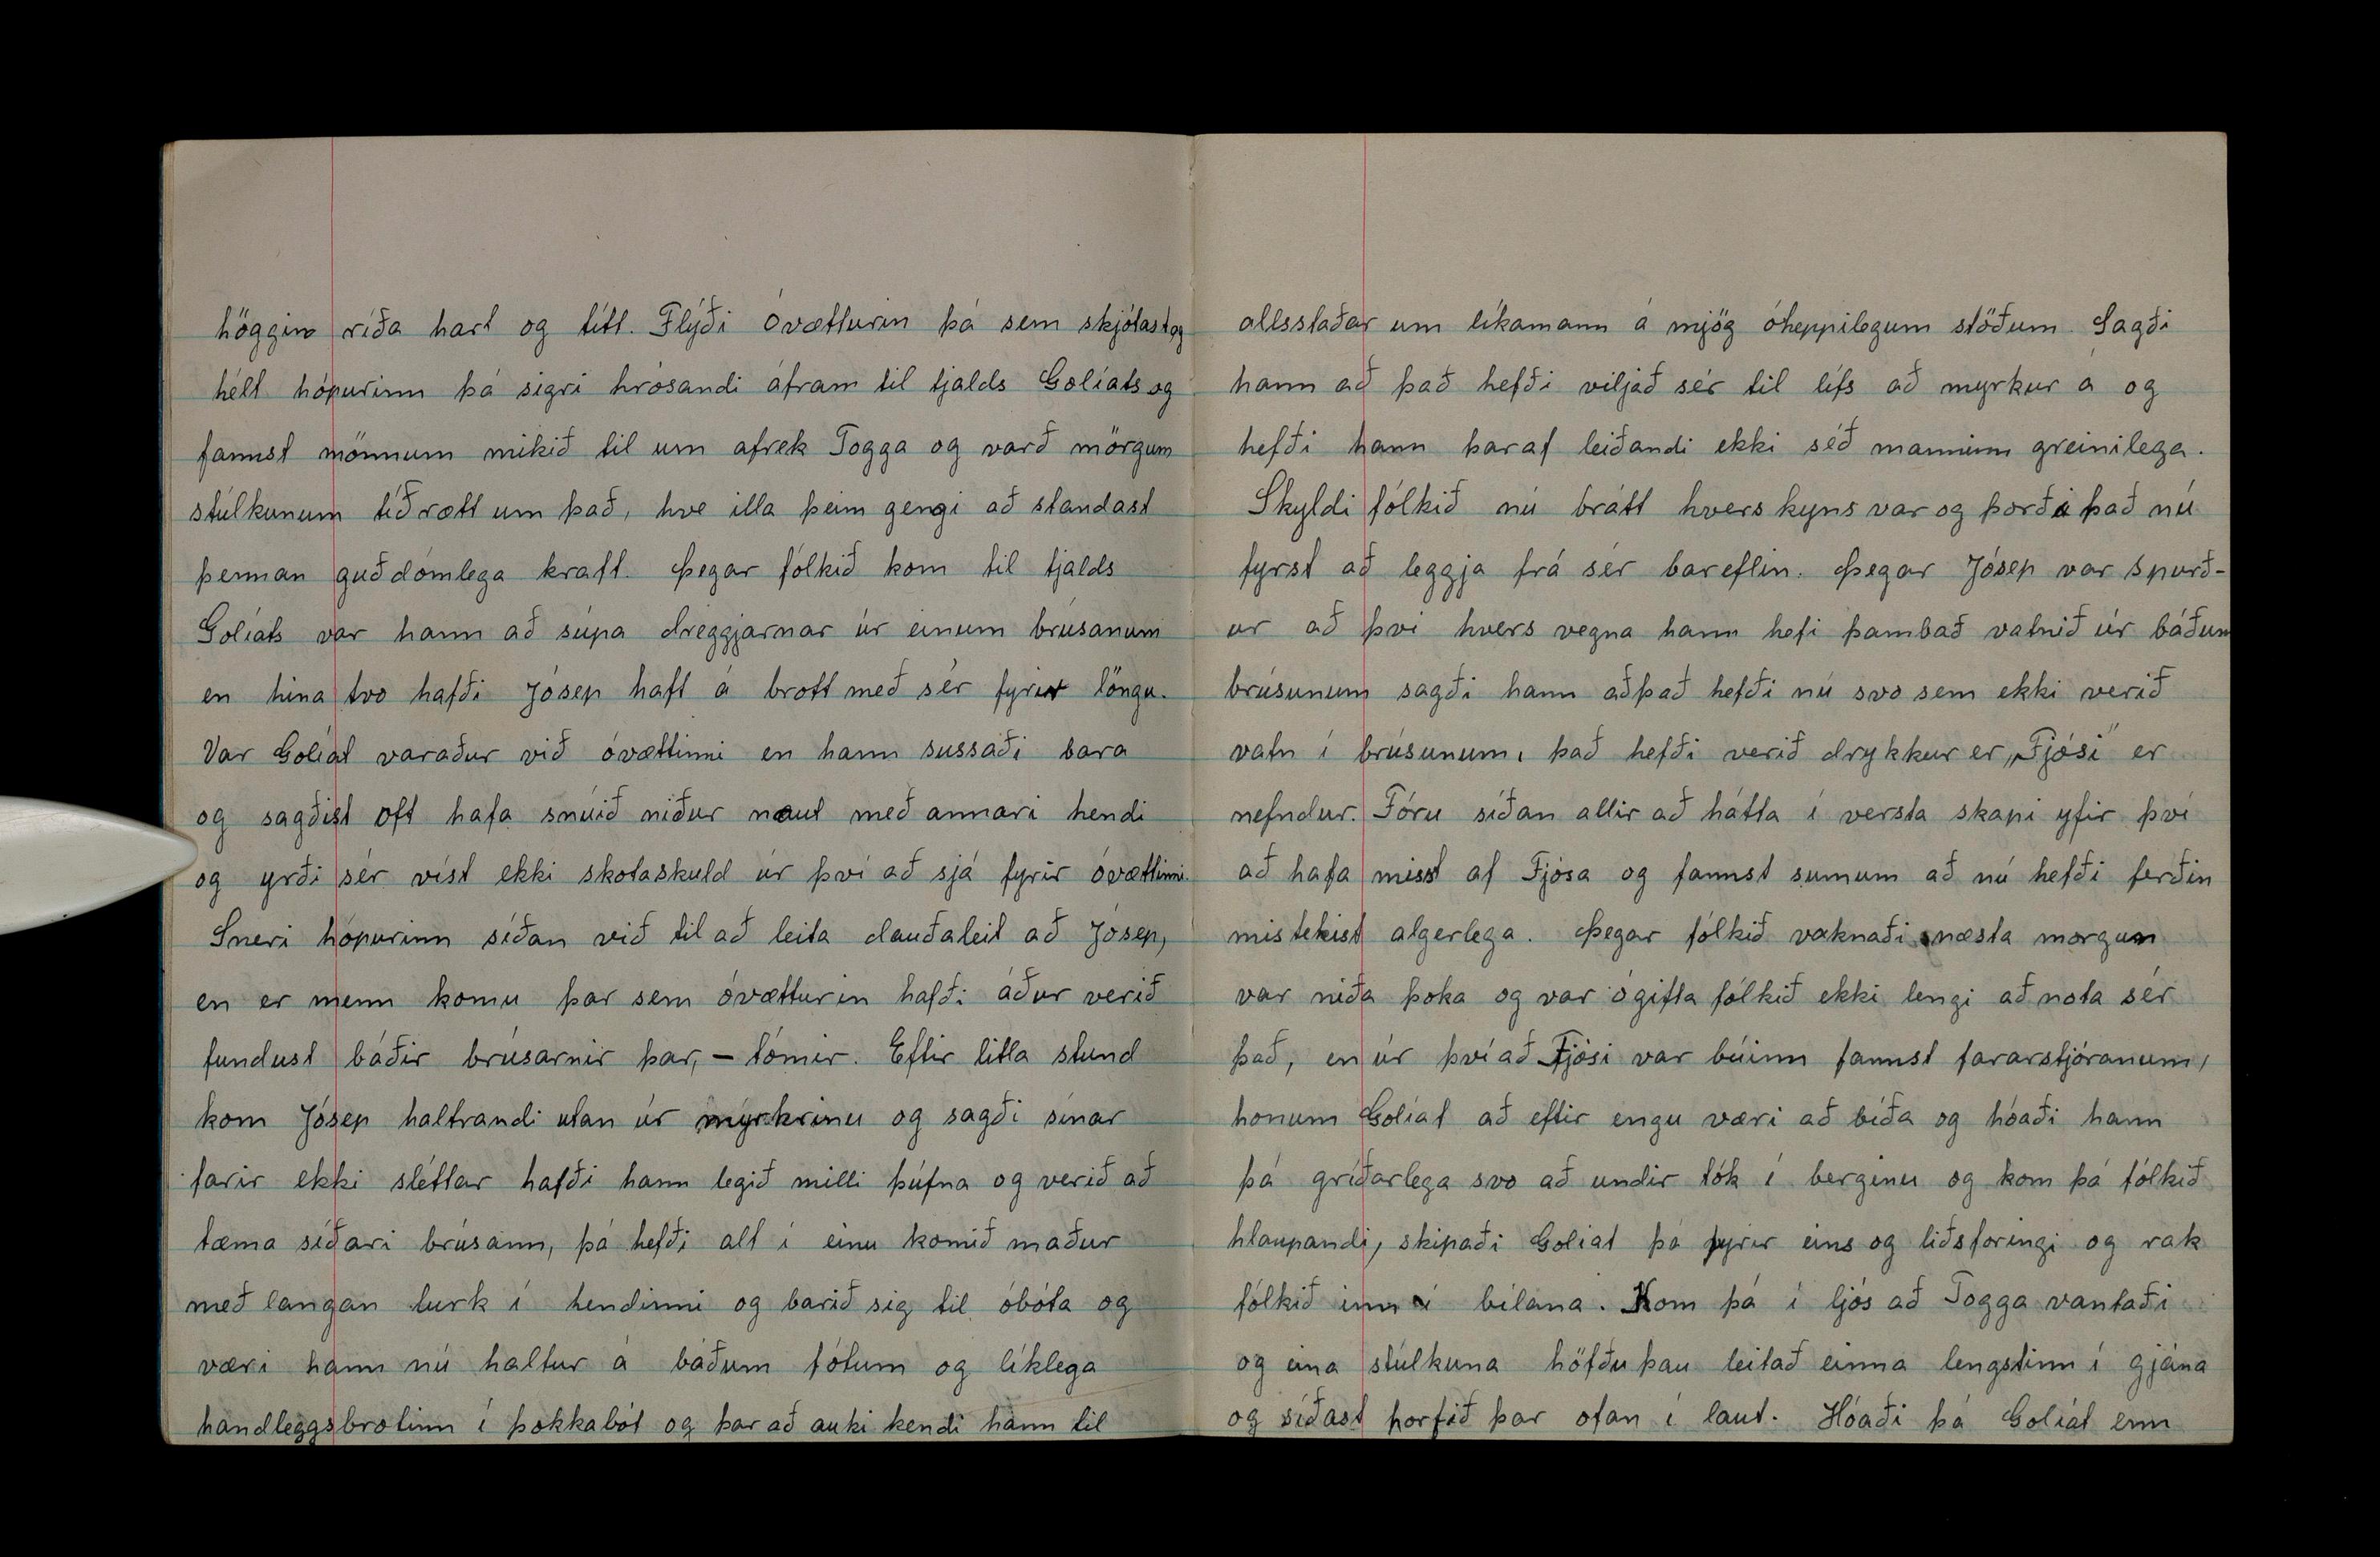 höggin ríða hart og títt. Flýði óvætturin þá sem skjótast og
hélt hópurinn þá sigri hrósandi áfram til tjalds Golíats og
fannst mönnum mikið til um afrek Togga og varð mörgum
stúlkunum tíðrætt um það, hve illa þeim gengi að standast
þennan guðdómlega kraft. Þegar fólkið kom til tjalds
Golíats var hann að súpa dreggjarnar úr einum brúsanum
en hina tvo hafði Jósep haft á brott með sér fyrir löngu.
Var Golíat varaður við óvættinni en hann sussaði bara
og sagðist oft hafa snúið niður naut með annari hendi
og yrði sér víst ekki skotaskuld úr því að sjá fyrir óvættinni.
Sneri hópurinn síðan við til að leita dauðaleit að Jósep,
en er menn komu þar sem óvætturin hafði áður verið
fundust báðir brúsarnir þar, – tómir. Eftir litla stund
kom Jósep haltrandi utan úr myrkrinu og sagði sínar
farir ekki sléttar hafði hann legið milli þúfna og verið að
tæma síðari brúsann, þá hefði alt í einu komið maður
með langan lurk í hendinni og barið sig til óbóta og
væri hann nú haltur á báðum fótum og líklega
handleggsbrotinn í þokkabót og þar að auki kendi hann til
allsstaðar um líkamann á mjög óheppilegum stöðum. Sagði
hann að það hefði viljað sér til lífs að myrkur á og
hefði hann þaraf leiðandi ekki séð manninn greinilega.
Skyldi fólkið nú brátt hvers kyns var og þorði það nú
fyrst að leggja frá sér bareflin. Þegar Jósep var spurð-
ur að því hvers vegna hann hefi þambað vatnið úr báðum
brúsunum sagði hann að það hefði nú svo sem ekki verið
vatn í brúsunum, það hefði verið drykkur er „Fjósi" er
nefndur. Fóru síðan allir að hátta í versta skapi yfir því
að hafa misst af Fjósa og fannst sumum að nú hefði ferðin
mistekist algerlega. Þegar fólkið vaknaði næsta morgun
var niða þoka og var ógifta fólkið ekki lengi að nota sér
það, en úr því að Fjósi var búinn fannst fararstjóranum,
honum Golíat að eftir engu væri að bíða og hóaði hann
þá gríðarlega svo að undir tók í berginu og kom þá fólkið
hlaupandi, skipaði Golíat þá fyrir eins og liðsforingi og rak
fólkið inn í bílana. Kom þá í ljós að Togga vantaði
og eina stúlkuna höfðu þau leitað einna lengst inn í gjána
og síðast horfið þar ofan í laut. Hóaði þá Golíat enn